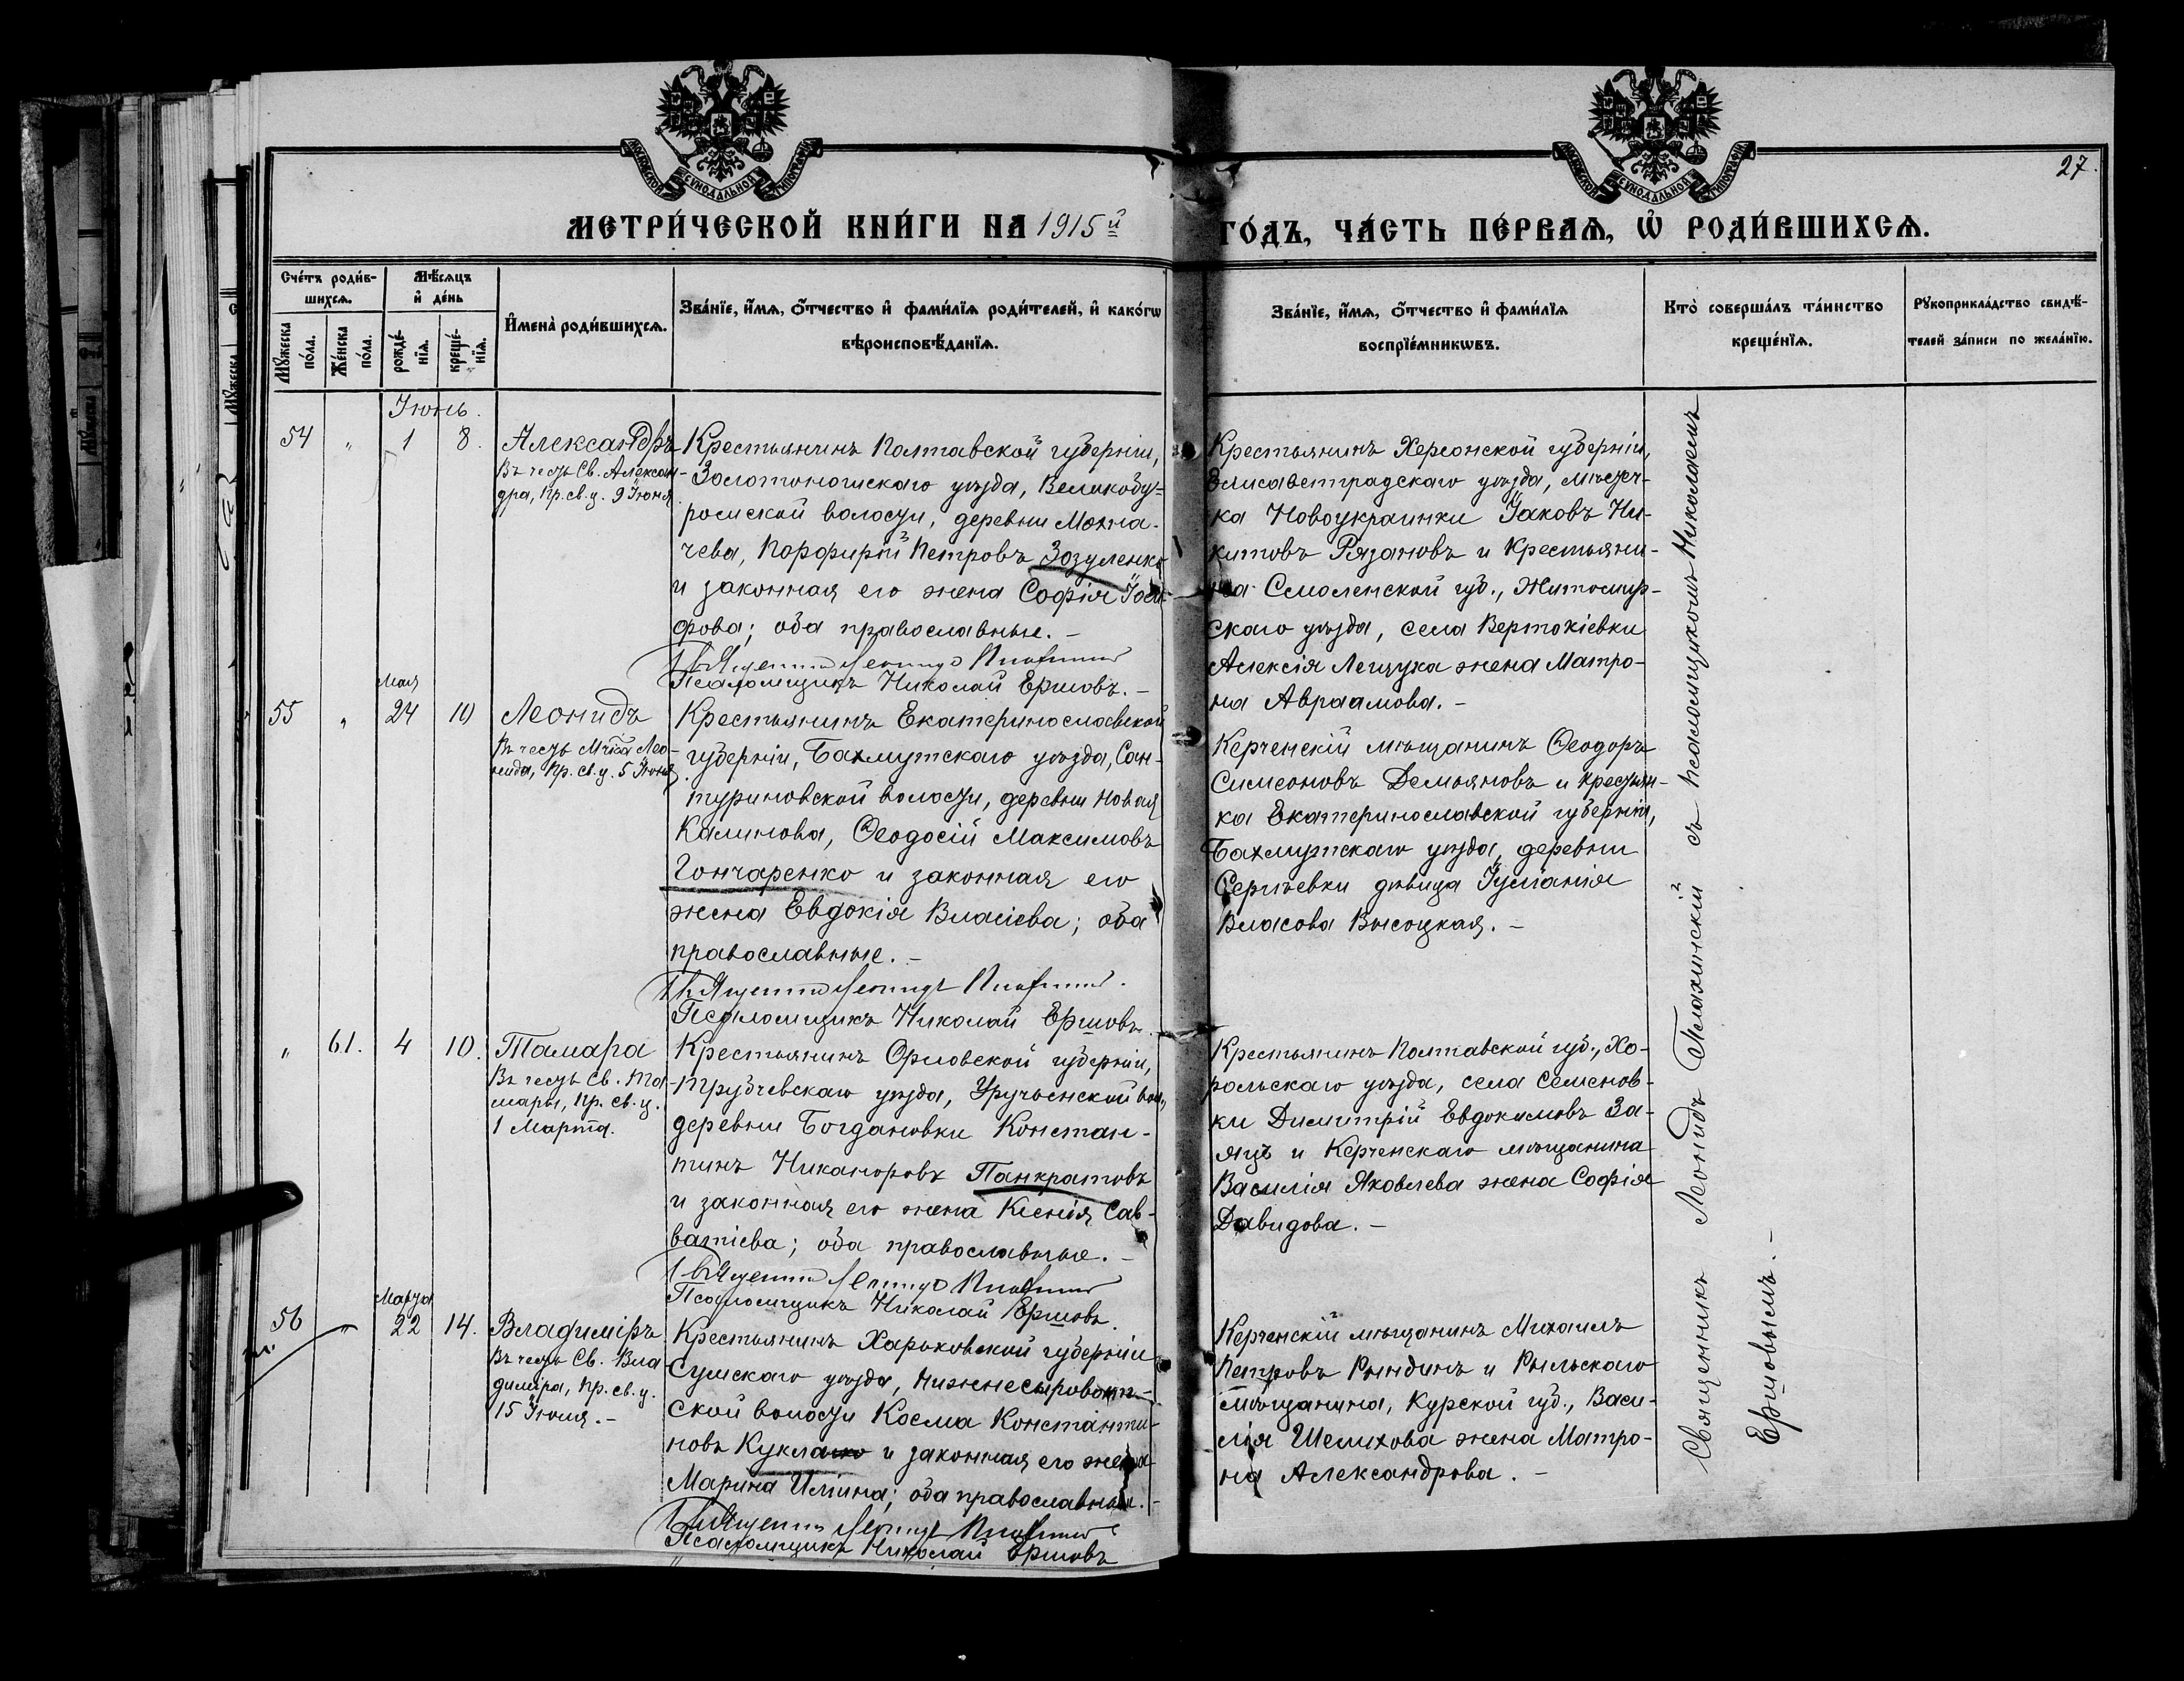 МОСКОВСКОЙ СѴНОДАЛЬНОЙ ТИПОГРАФІИ
МОСКОВСКОЙ СѴНОДАЛЬНОЙ ТИПОГРАФІИ
27.
МЕТРИ́ЧЕСКОЙ КНИ́ГИ НА 1915й ГО́ДЪ, ЧА́СТЬ ПЕ́РВАѦ, Ѡ҆ РОДИ́ВШИХСѦ.
Сче́тъ роди́в-
шихсѧ.
Мꙋ́жеска по́ла.
Же́нска по́ла.
Мѣ́сѧцъ
и҆ де́нь
рожде́-нїѧ.
креще́-нїѧ.
И҆мена̀ роди́вшихсѧ.
Зва́нїе, и҆́мѧ, ѻ҆́тчество и҆ фами́лїѧ роди́телей, и҆ како́гѡ
вѣроисповѣ́данїѧ.
Зва́нїе, и҆́мѧ, ѻ҆́тчество и҆ фами́лїѧ
воспрїе́мникѡвъ.
Кто̀ соверша́лъ та́инство
креще́нїѧ.
Рꙋкоприкла́дство свидѣ́-
телей за́писи по жела́нїю.
Іюнь.
54 " 1 8.
Александръ
Въ честь Св. Алексан-
дра, Пр. св. ц. 9 Іюня
Крестьянинъ Полтавской губерніи,
Золотоношскаго уѣзда, Великобу-
ромской волости, деревни Мохна-
чева, Порфирій Петровъ Зозуленко
и законная его жена Софія Іоси-
фова; оба православные. –
Священникъ Леонидъ
Псаломщикъ Николай Ершовъ. –
Крестьянинъ Херсонской губерніи,
Элисаветградскаго уѣзда, мѣстеч-
ка Новоукраинки Іаковъ Ни-
китовъ Рязановъ и Крестьяни-
на Смоленской губ., Житомир-
скаго уѣзда, села Вертокіевки
Алексія Лещука жена Матро-
на Авраамова. –
Мая
55 " 24 10
Леонидъ
Въ честь Мч. Лео-
нида, Пр. св. ц. 5 Іюня
Крестьянинъ Екатеринославской
губерніи, Бахмутскаго уѣзда, Сан-
туриновской волости, деревни Новая
Калинова, Ѳеодосій Максимовъ
Гончаренко и законная его
жена Евдокія Власіева; оба
православные. –
Священникъ Леонидъ
Псаломщикъ Николай Ершовъ.
Керченскій мѣщанинъ Ѳеодоръ
Симеоновъ Демьяновъ и крестьян-
ка Екатеринославской губерніи,
Бахмутскаго уѣзда, деревни
Сергѣевки дѣвица Іуліанія
Власова Высоцкая. –
" 61. 4 10.
Тамара
Въ честь Св. Та-
мары, Пр. св. ц.
1 Марта.
Крестьянинъ Орловской губерніи,
Трубчевскаго уѣзда, Уручьенской вол.,
деревни Богдановки Констан-
тинъ Никаноровъ Панкратовъ
и законная его жена Ксенія Сав-
ватіева; оба православные. –
Священникъ Леонидъ
Псаломщикъ Николай Ершовъ.
Крестьянинъ Полтавской губ., Хо-
рольскаго уѣзда, села Семенов-
ки Димитрій Евдокимовъ За-
яцъ и Керченскаго мѣщанина
Василія Яковлева жена Софія
Давидова. –
Марта
56 " 22 14.
Владиміръ
Въ честь Св. Вла
диміра, Пр. св. ц.
15 Іюля. –
Крестьянинъ Харьковской губерніи
Сумскаго уѣзда, Нижнесыроват-
ской волости Косма Константи-
новъ Кукла и законная его жена
Марина Ильина; оба православные. –
Священникъ Леонидъ
Псаломщикъ Николай Ершовъ
Керченскій мѣщанинъ Михаилъ
Петровъ Рындинъ и Рыльскаго
мѣщанина, Курской губ., Васи-
лія Шелихова жена Матро-
на Александрова. –
Священникъ Леонидъ Плахинскій съ псаломщикомъ Николаемъ
Ершовымъ. –